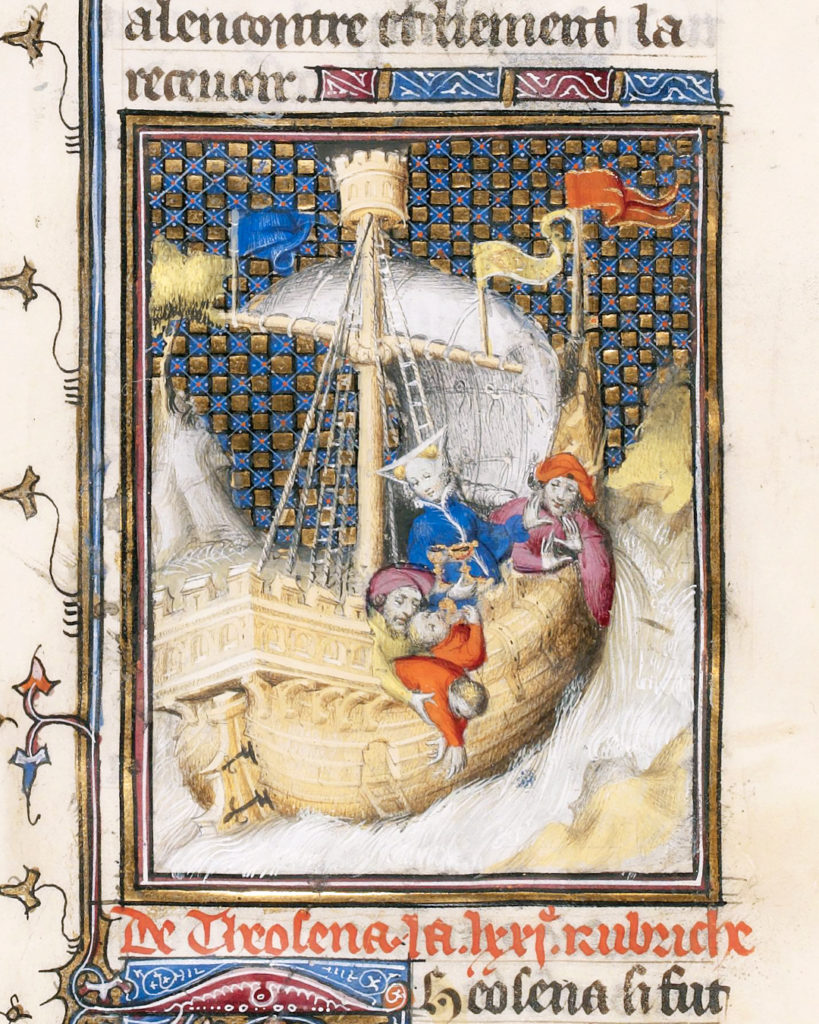 alencontre et liement la
receuoir.
De Theosena la .lxxj.e rubriche
Heosena si fut